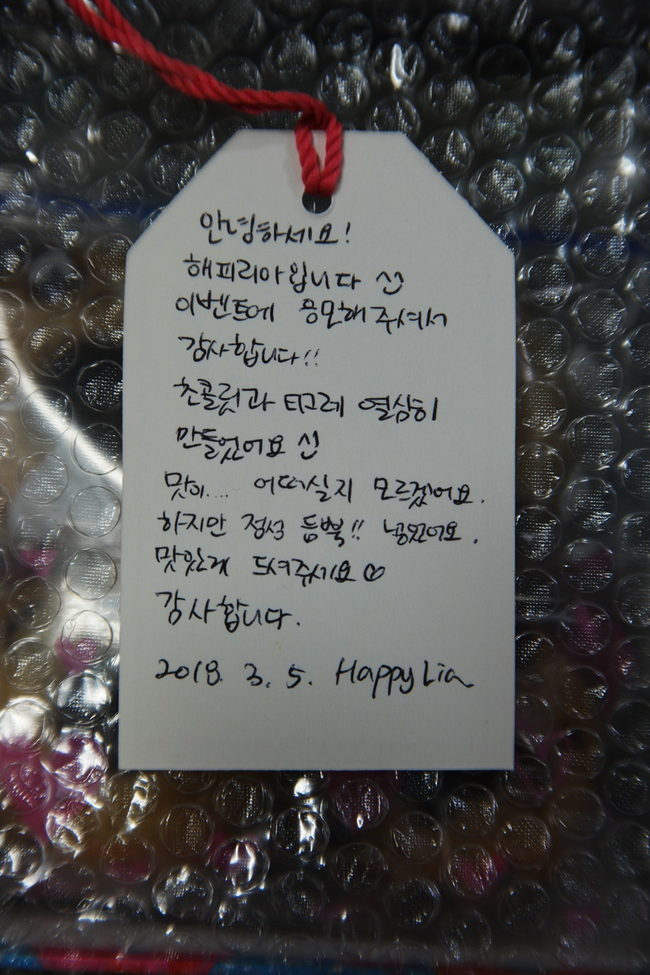 안녕하세요!
해피리아입니다 :)
이벤트에 응모해 주셔서
감사합니다!!
초콜릿과 티그레 열심히
만들었어요 :)
맛이.... 어떠실지 모르겠어요.
하지만 정성 듬뿍!! 넣었어요.
맛있게 드셔주세요♡
감사합니다.
2018. 3. 5. Happy Lia